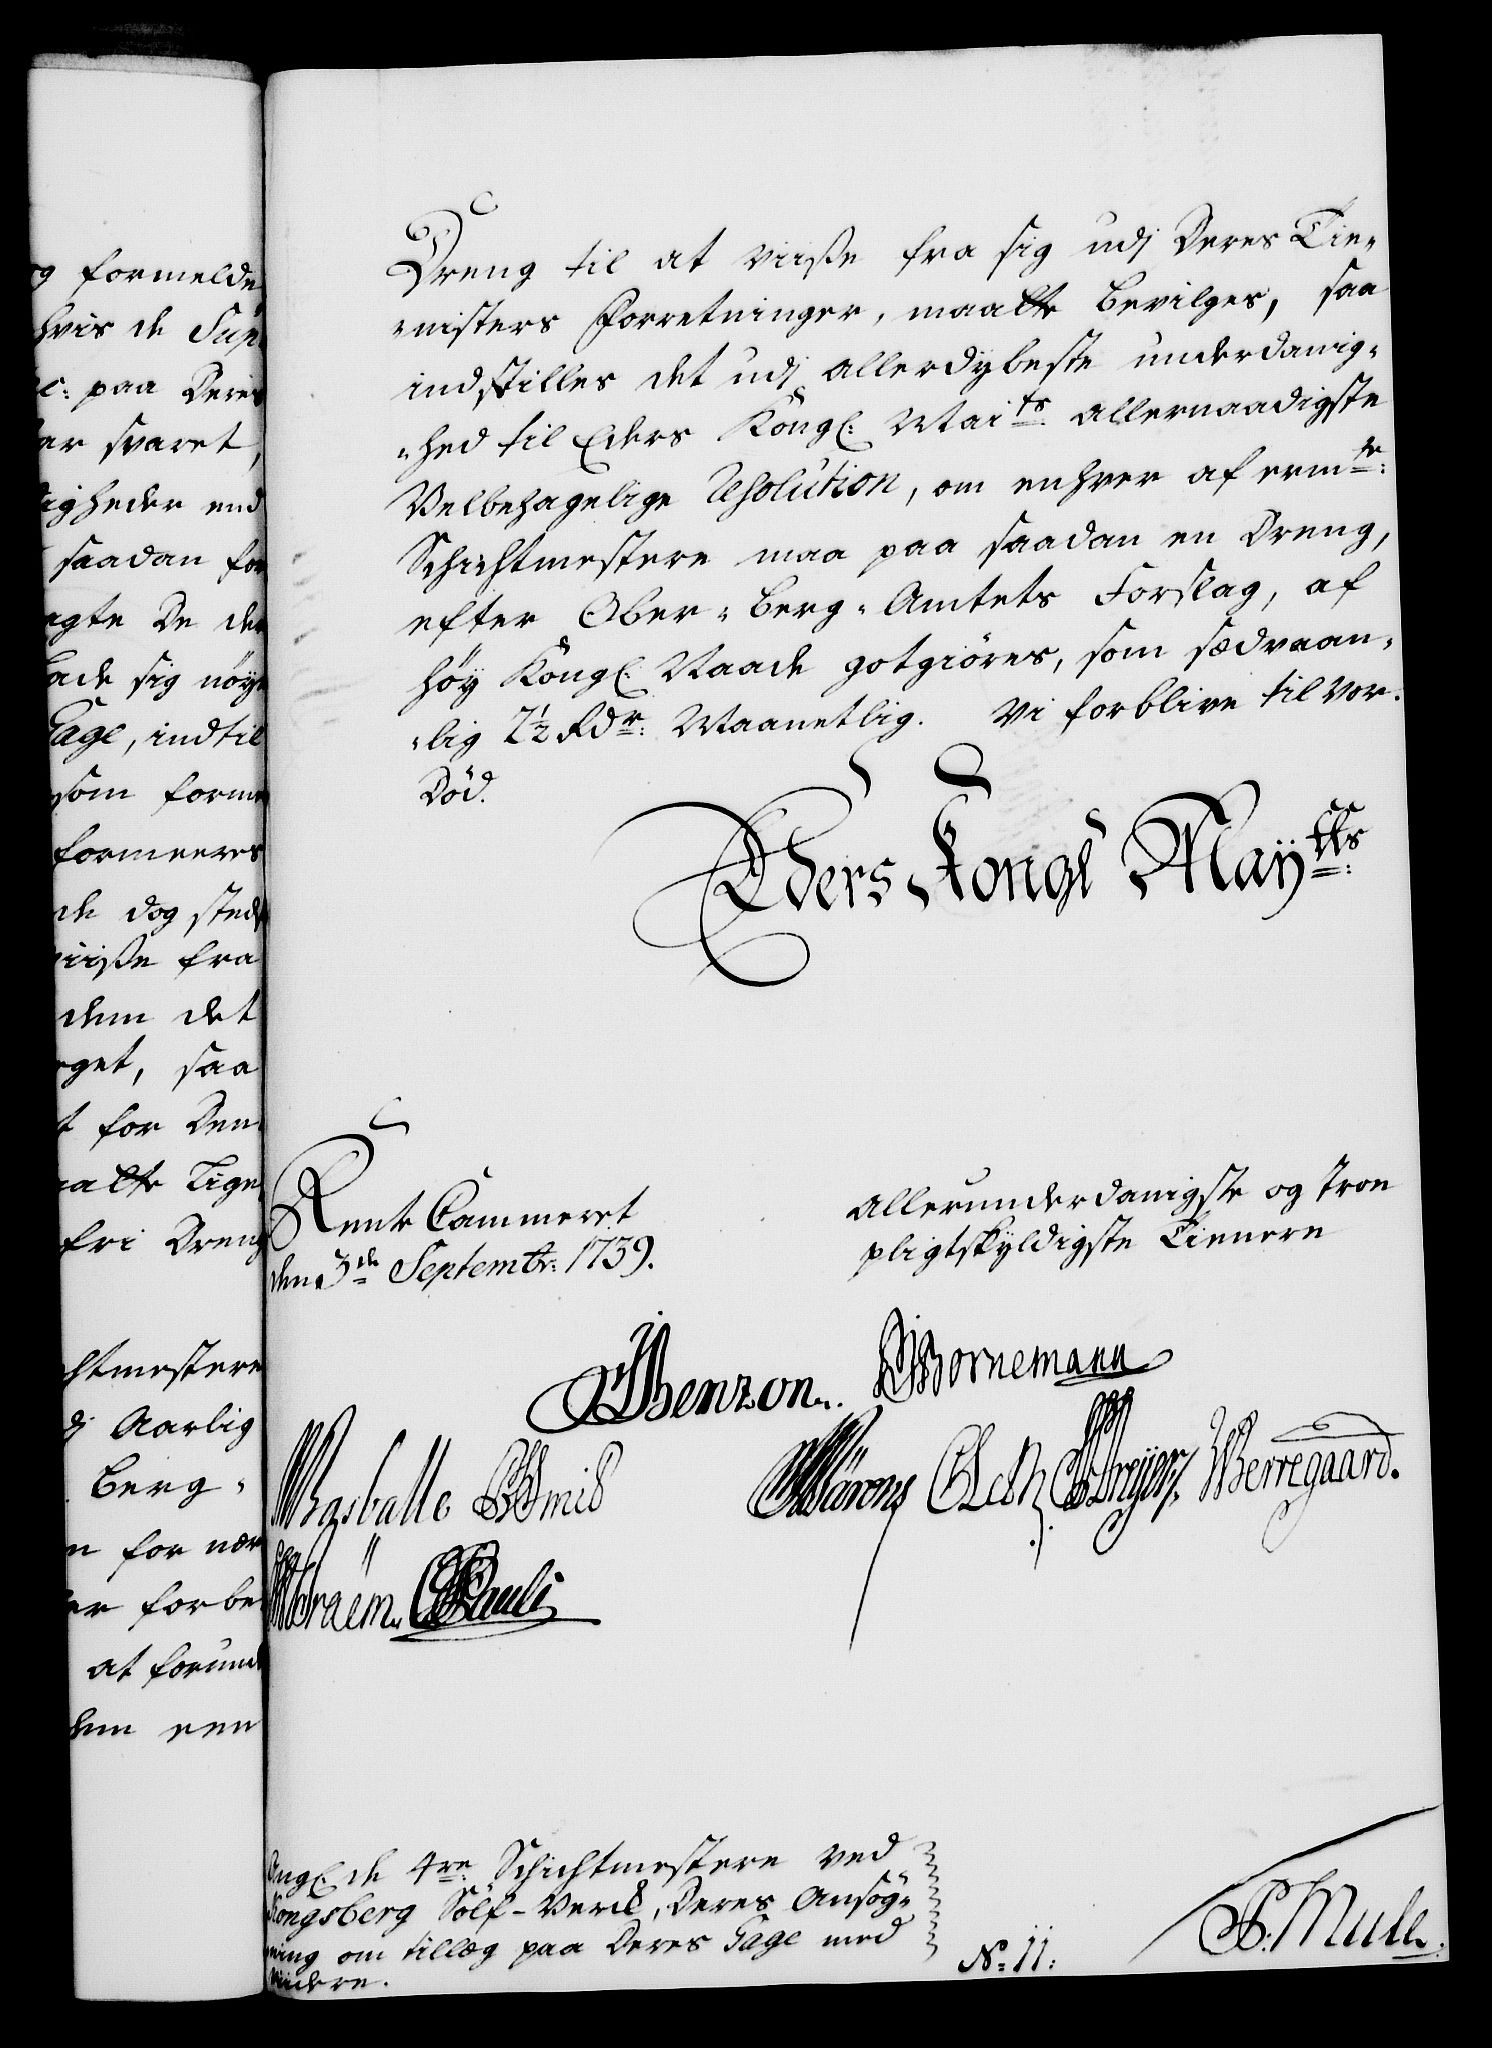 g formelde
hvis de Sup
c: paa Deris
er svaret,
igheder end
saadan for
agte De der
lade sig nøye
Gage, indtil
som forme
formeeres
de dog steds
viiße fra
dem det
rget, saa
t for Den
aatte Lige
fri Dreng
htmestere
dj Aarlig
Berg-
n for nær
er forbe
at forund
dem een
Dreng til at viiße fra sig udj Deres Tie-
-nisters Forretninger, maatte bevilges, saa
indstilles det udj allerdybeste underdanig-
-hed til Eders Kongl: Maits: allernaadigste
Velbehagelige Resolution, om enhver af ermte:
Schichtmestere maa paa saadan en Dreng,
efter Ober-Berg-Amtets Forslag, af
høy Kongl: Naade gotgiøres, som sædvaan-
-lig 2½ Rdr: Maanetlig. Vi forblive til vor
Død.
Eders Kongl Maytts:
Rente Cammeret
den 3de Septembr: 1739.
Allerunderdanigste og troe
pligtskyldigste Tienere
Benzon. Bornemann
Basballe Smid
Pauli
Dreyer. Werregaard.
Angl: de 4re: Schichtmestere ved
Kongsberg Sölf-Verck, Deres Ansøg-
ning om tillæg paa Deres Gage med
viidere.
No: 11:
Mule.